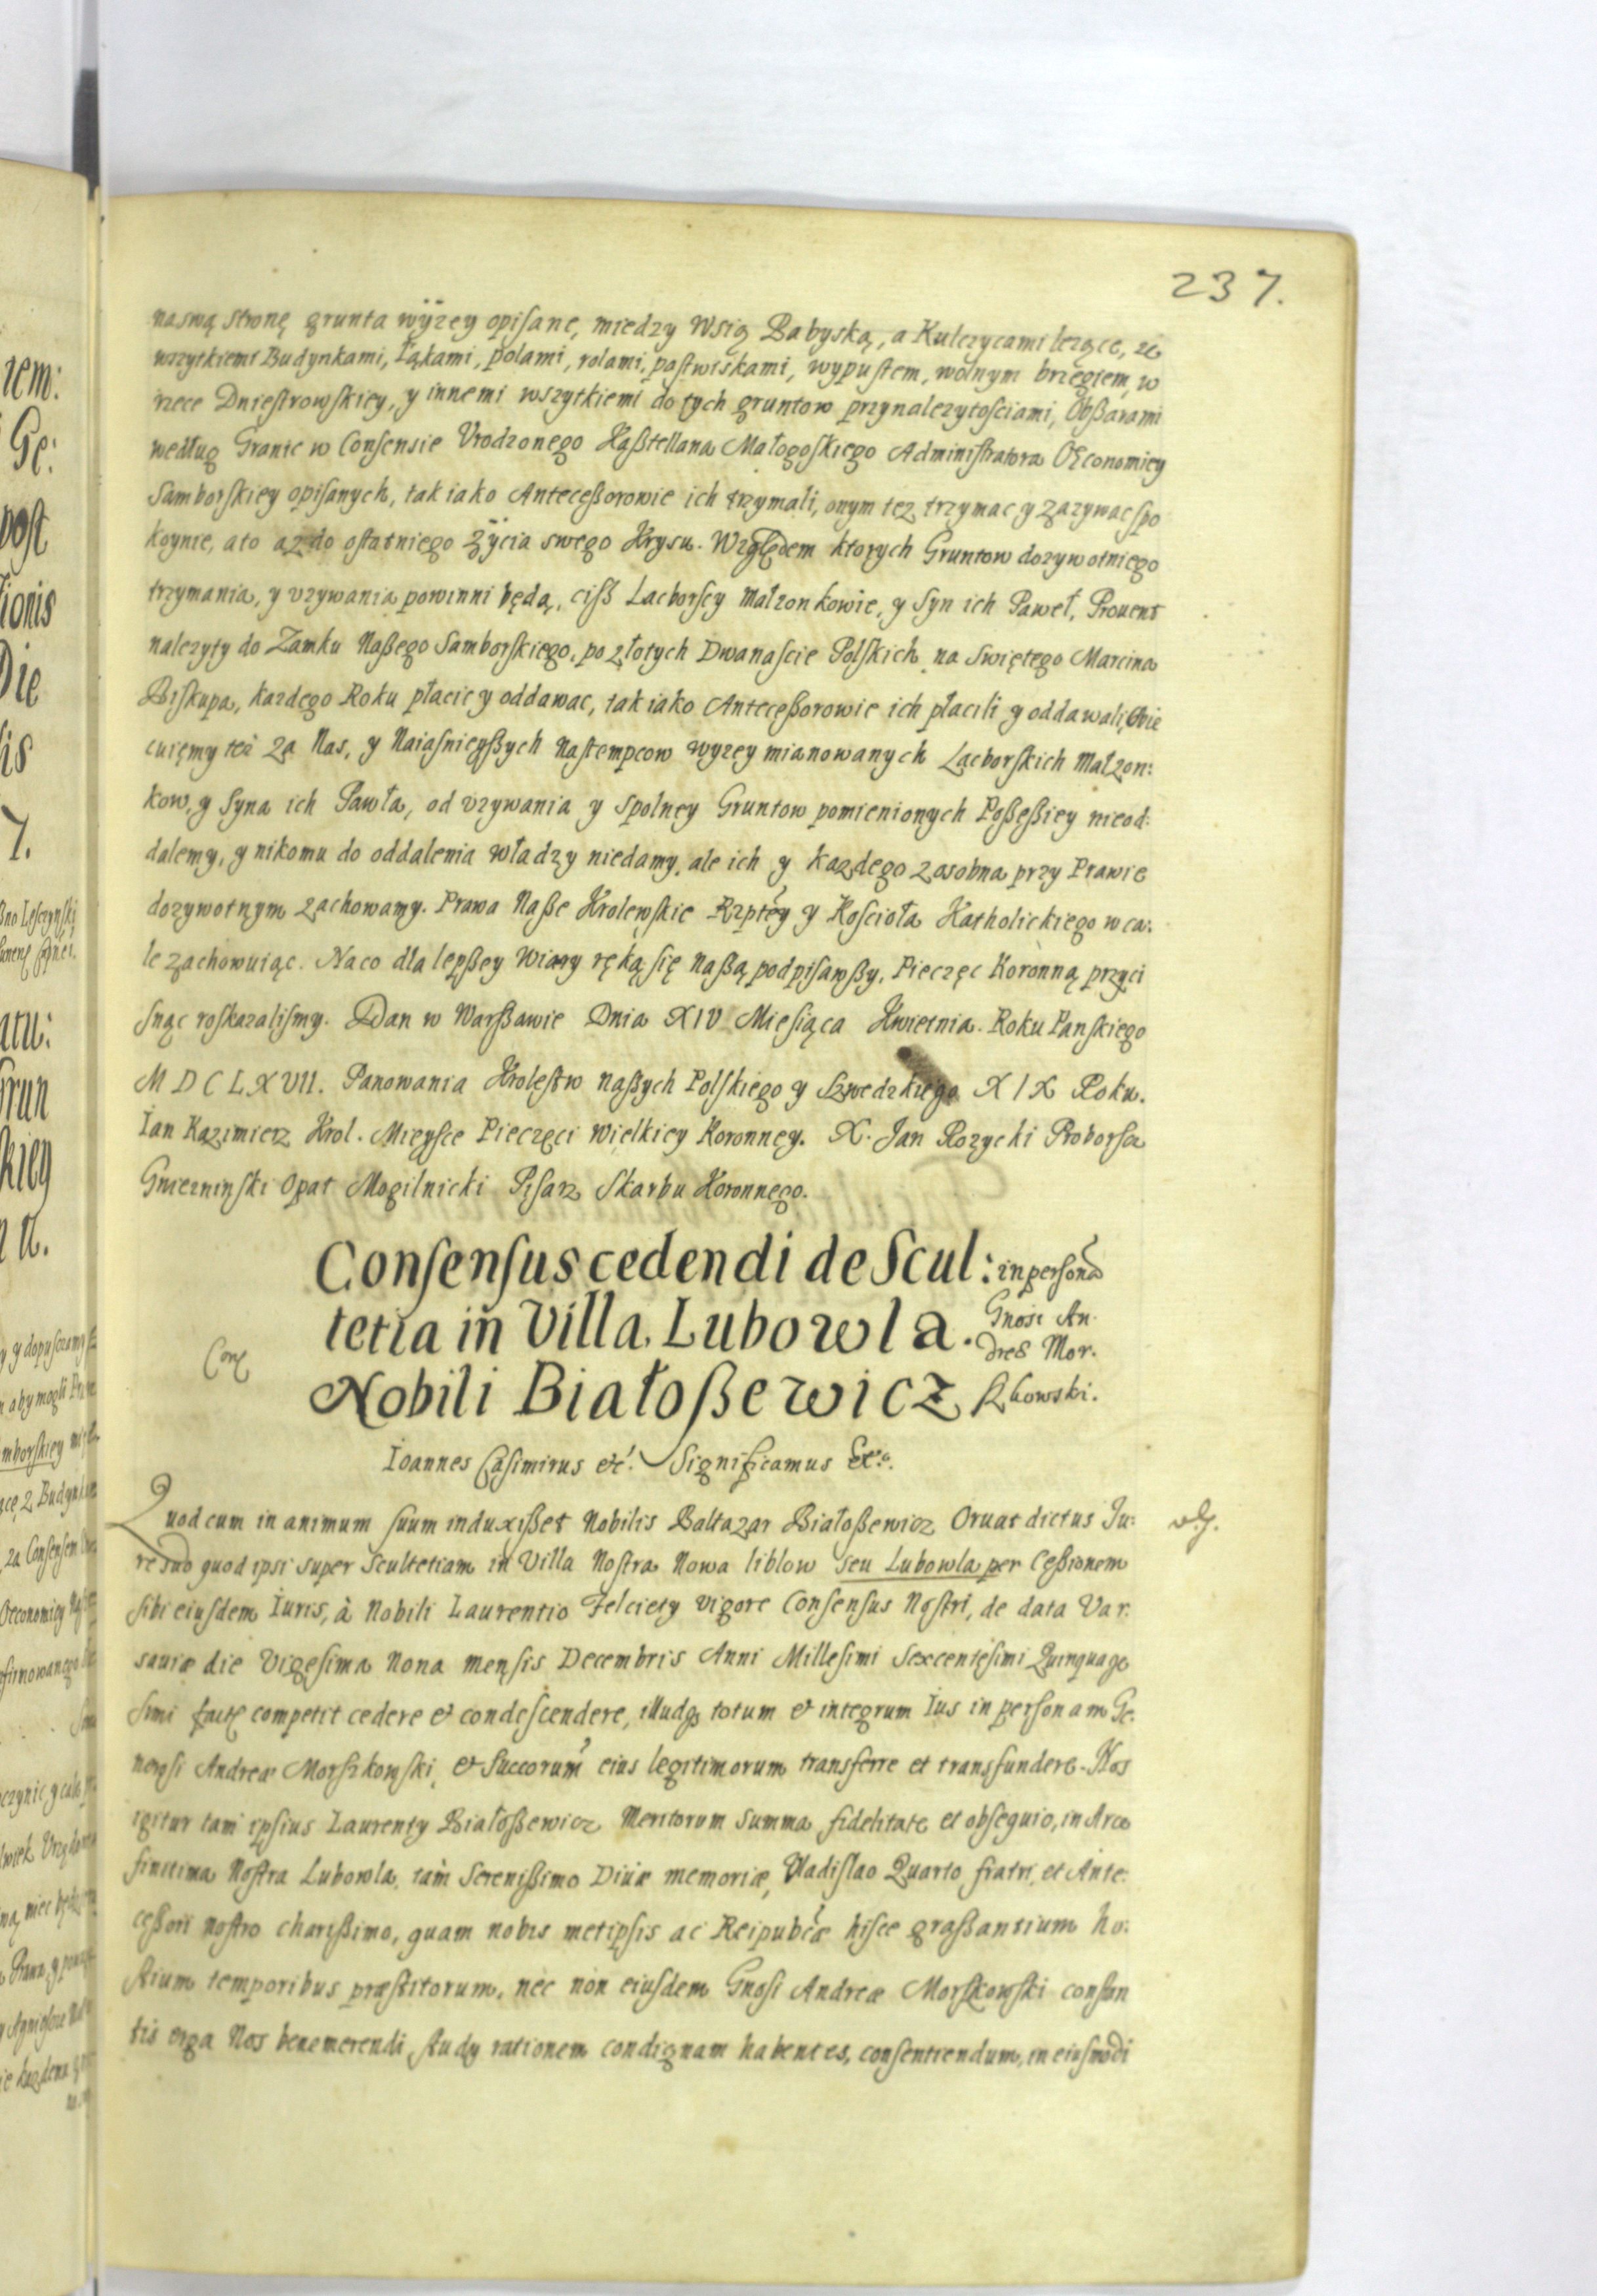 237.
na swą stronę grunta wÿzey opisane, miedzy Wsią Babyską, a Kulczycami lezące, ze
wszytkiemi Budynkami, łąkami, polami, rolami, pastwiskami, wypustem, wolnym brzegiem, w
rzece Dniestrowskiey, y innemi wszytkiemi do tych gruntow przynalezytosciami, Obßarami
według Granic w Consensie Vrodzonego Kaßtellana Małogoskiego Administratora OEconomiey
Samborskiey opisanych, tak iako Anteceßorowie ich trzymali, onym tez trzymac y zazywac spo
koynie, a to az do ostatniego zÿcia swego Krysu. Względem ktorych Gruntow dozywotniego
trzymania, y vzywania powinni będą, ciß Lacborscy małzonkowie, y Syn ich Paweł, Prouent
nalezyty do Zamku Naßego Samborskiego, po złotych Dwanascie Polskich na swiętego Marcina
Biskupa, kazdego Roku płacic y oddawac, tak iako Anteceßorowie ich płacili y oddawali, Obie
cuięmy tez za Nas, y Naiasnieyßych Nastempcow wyzey mianowanych Lacborskich Małzon:
kow, y Syna ich Pawła, od vzywania y spolney Gruntow pomienionych Poßeßiey nieod:
dalemy, y nikomu do oddalenia władzy niedamy, ale ich y kazdego zosobna przy Prawie
dozywotnym zachowamy. Prawa Naße Krolewskie Rzptey y Koscioła Katholickiego w ca:
le zachowuiąc. Na co dla lepßey Wiary ręką się Naßą podpisawßy, Pieczęc Koronną przyci
snąc roskazalismy. Dan w Warßawie Dnia XIV Miesiąca Kwietnia. Roku Panskiego
MDCLXVII. Panowania Krolestw Naßych Polskiego y Szwedzkiego XIX Roku.
Ian Kazimierz Krol. Mieysce Pieczęci Wielkiey Koronney. X. Jan Rozycki Probosz
Gniezninski Opat Mogilnicki Pisarz Skarbu Koronnego.
Consensus cedendi de Scul: in persona
tetia in Villa Lubowla. Gnosi An
dreæ Mor.
Nobili Białoßewicz szkowski.
Ioannes Casimirus etc. Significamus etc.
Quod cum in animum suum induxißet Nobilis Baltazar Białoßewicz Oruat dictus Iu:
re suo quod ipsi super Scultetiam in Villa Nostra Nowa liblow seu Lubowla per Ceßionem
sibi eiusdem Iuris, à Nobili Laurentio Felciety vigore Consensus Nostri, de data Var:
sauiæ die Vigesima Nona mensis Decembris Anni Millesimi Sexcentesimi Quinquage
simi factę competit cedere et condescendere, illudq totum et integrum Ius in personam Ge:
nerosi Andreæ Morszkowski, et succorum eius legitimorum transferre et transfundere. Nos
igitur tam ipsius Laurenty Białoßewicz Meritorum Summa fidelitate et obsequio, in Arce
finitima Nostra Lubowla, tàm Serenißimo Diuæ memoriæ, Vladislao Quarto fratri, et Ante:
ceßori nostro charißimo, quam nobis metipsis ac Reipubcæ hisce graßantium ho:
stium temporibus præstitorum, nec non eiusdem Gnosi Andreæ Morszkowski constan
tis erga Nos benemerendi study rationem condignam habentes, consentiendum, in eiusmodi